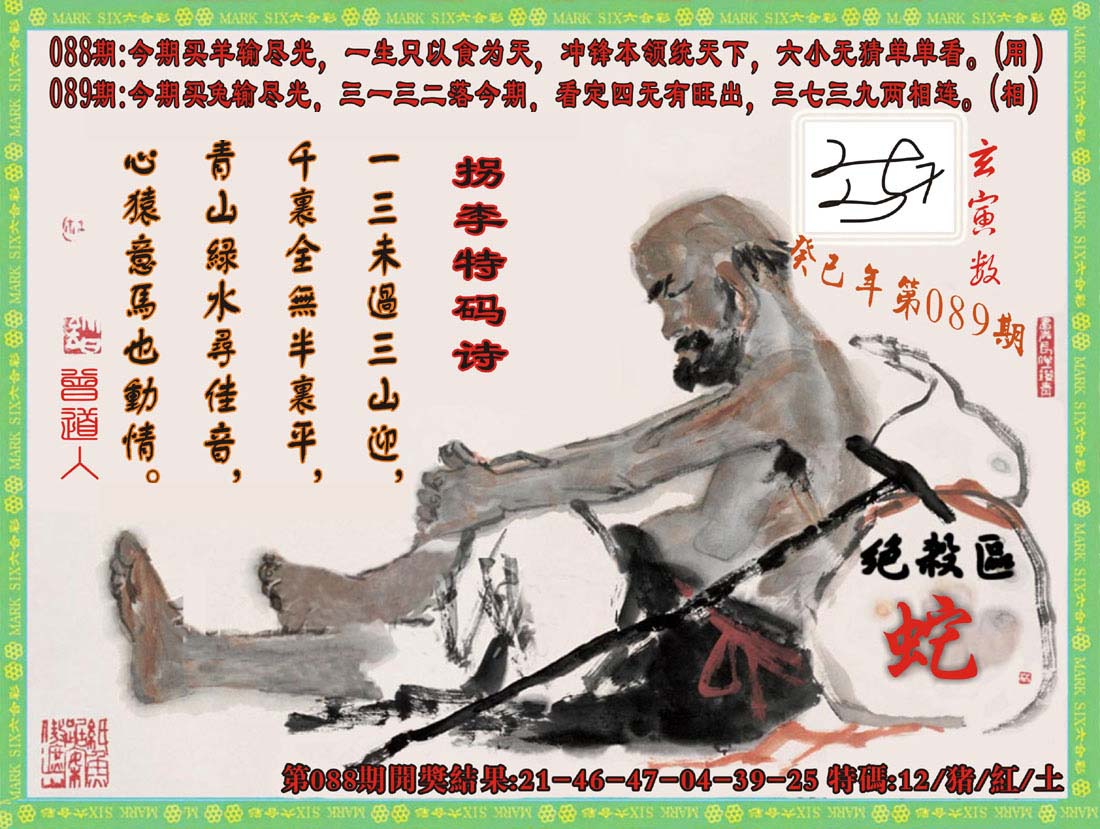 MARK SIX六合彩 MARK SIX六合彩 MARK SIX六合彩 MARK SIX六合彩 MARK SIX六合彩 MARK SIX六合彩
088期:今期买羊输尽光，一生只以食为天，冲锋本领统天下，六小无猜单单看。(用)
089期:今期买兔输尽光，三一三二落今期，看定四无有旺出，三七三九两相连。(相)
玄寅数
癸巳年第089期
拐李特码诗
一三未過三山迎，
千裏全無半裏平，
青山綠水尋佳音，
心猿意馬也動情。
曾道人
绝殺區
蛇
第088期開獎結果:21-46-47-04-39-25 特碼:12/猪/紅/土